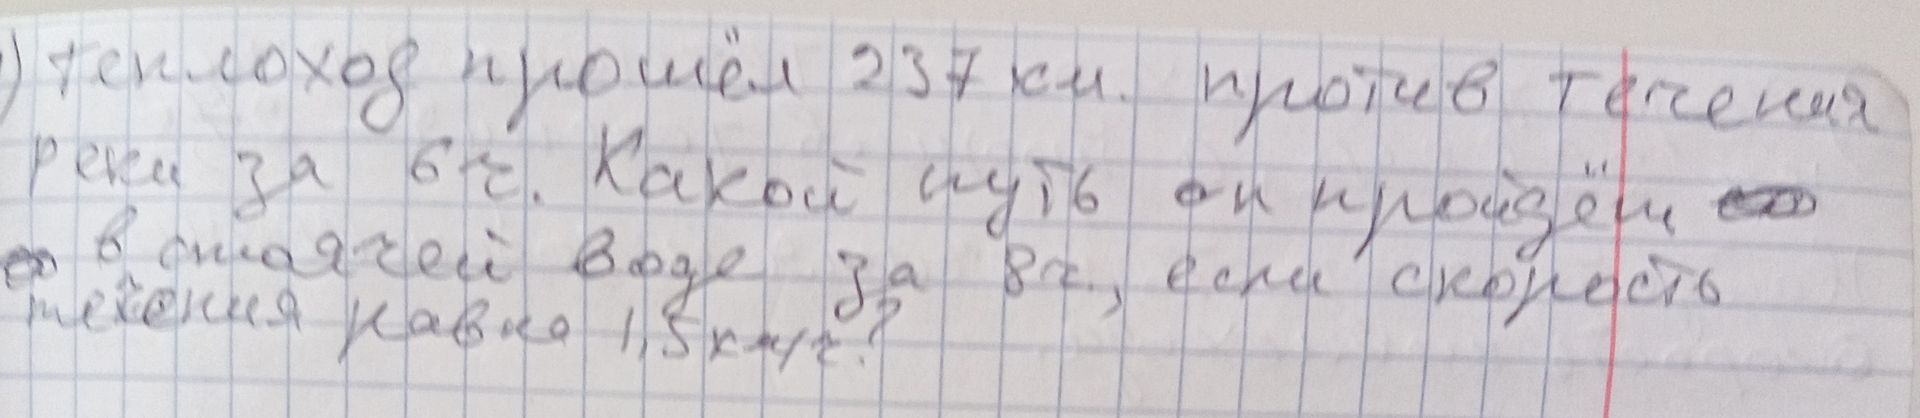 1) теплоход прошёл 237 км. против течения
реки за 6 ч. Какой путь он пройдёт
в стоячей воде за 8 ч., если скорость
течения равна 1,5 км/ч.?